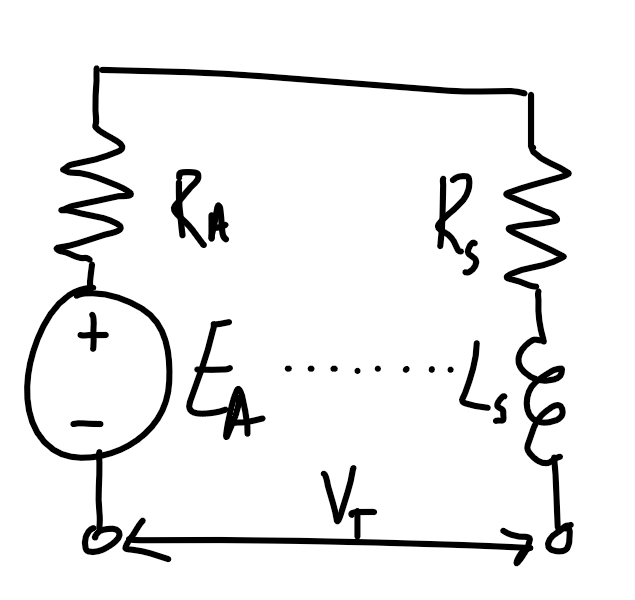 R_A R_s
+
E_A ......... L_s
−
V_T